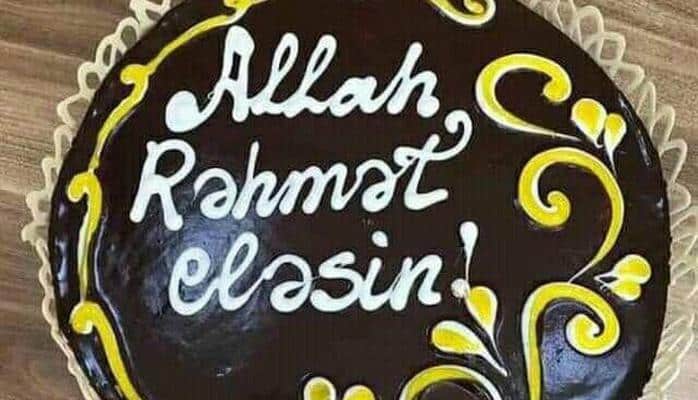 Allah
Rəhmət
eləsin!